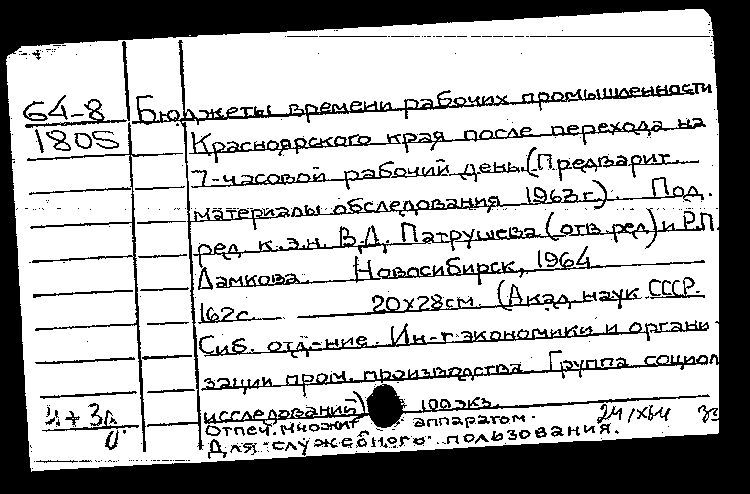 64-8 Бюджеты времени рабочих промышленности
1805 Красноярского края после перехода на
7-часовой рабочий день. (Предварит.
материалы обследования 1963 г.). Под.
ред к.э.н. В.Д. Патрушева (отв ред) и Р.П.
Дамкова. Новосибирск, 1964
162с. 20х28см. (Акад наук СССР.
Сиб. отд-ние. Ин-т экономики и органи
зации пром. производства. Группа социол
исследований) 100 экз.
Отпеч. множит аппаратом. 24/X64
Для служебного пользования.